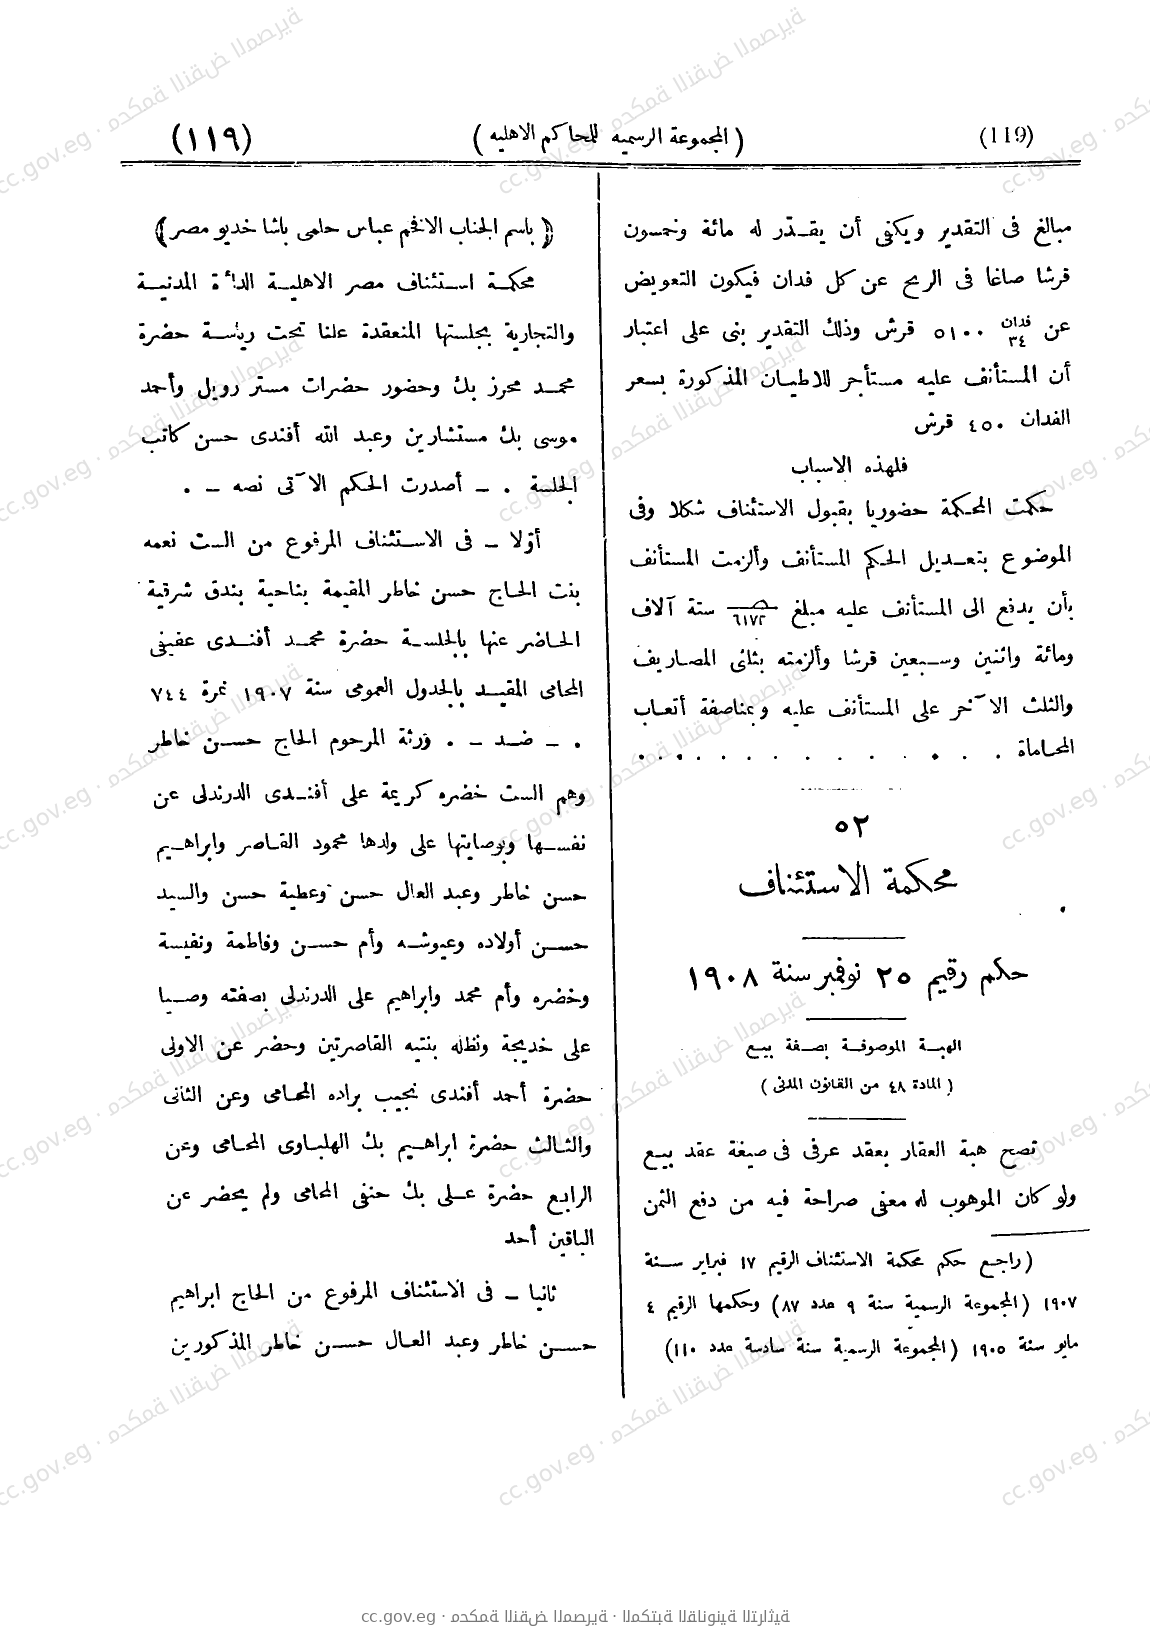 (119)
(المجموعة الرسميه للمحاكم الاهليه)
(١١٩)
مبالغ فى التقدير ويكفى أن يقدّر له مائة وخمسون
قرشا صاغا فى الربح عن كل فدان فيكون التعويض
عن فدان ٣٤ ٥١٠٠ قرش وذلك التقدير بنى على اعتبار
أن المستأنف عليه مستأجر للاطيان المذكورة بسعر
الفدان ٤٥٠ قرش
فلهذه الاسباب
حكمت المحكمة حضوريا بقبول الاستئناف شكلا وفى
الموضوع بتعديل الحكم المستأنف وألزمت المستأنف
بأن يدفع الى المستأنف عليه مبلغ ٦١٧٢ ستة آلاف
ومائة واثنين وسبعين قرشا وألزمته بثلثى المصاريف
والثلث الآخر على المستأنف عليه وبمناصفة أتعاب
المحاماة . . . . . . . . . . . .
٥٢
محكمة الاستئناف
حكم رقيم ٢٥ نوفمبر سنة ١٩٠٨
الهبة الموصوفة بصفة بيع
(المادة ٤٨ من القانون المدنى)
تصح هبة العقار بعقد عرفى فى صيغة عقد بيع
ولو كان الموهوب له معفى صراحة فيه من دفع الثمن
(راجع حكم محكمة الاستئناف الرقيم ١٧ فبراير سنة
١٩٠٧ (المجموعة الرسمية سنة ٩ عدد ٨٧) وحكمها الرقيم ٤
مايو سنة ١٩٠٥ (المجموعة الرسمية سنة سادسة عدد ١١٠)
(باسم الجناب الافخم عباس حلمى باشا خديو مصر)
محكمة استئناف مصر الاهلية الدائرة المدنية
والتجارية بجلستها المنعقدة علنا تحت رياسة حضرة
محمد محرز بك وحضور حضرات مستر رويل وأحمد
موسى بك مستشارين وعبد الله أفندى حسن كاتب
الجلسة . ــ أصدرت الحكم الآتى نصه ــ .
أوّلا ــ فى الاستئناف المرفوع من الست نعمه
بنت الحاج حسن خاطر المقيمة بناحية بندق شرقية
الحاضر عنها بالجلسة حضرة محمد أفندى عفيفى
المحامى المقيد بالجدول العمومى سنة ١٩٠٧ نمرة ٧٤٤
. ــ ضد ــ . ورثة المرحوم الحاج حسن خاطر
وهم الست خضره كريمة على أفندى الدرندلى عن
نفسها وبوصايتها على ولدها محمود القاصر وابراهيم
حسن خاطر وعبد العال حسن وعطية حسن والسيد
حسن أولاده وعيوشه وأم حسن وفاطمة ونفيسة
وخضره وأم محمد وابراهيم على الدرندلى بصفته وصيا
على خديجة ونظله بنتيه القاصرتين وحضر عن الاولى
حضرة أحمد أفندى نجيب براده المحامى وعن الثانى
والثالث حضرة ابراهيم بك الهلباوى المحامى وعن
الرابع حضرة على بك حنفى المحامى ولم يحضر عن
الباقين أحد
ثانيا ــ فى الاستئناف المرفوع من الحاج ابراهيم
حسن خاطر وعبد العال حسن خاطر المذكورين
cc.gov.eg · محكمة النقض المصرية · المكتبة القانونية التراثية